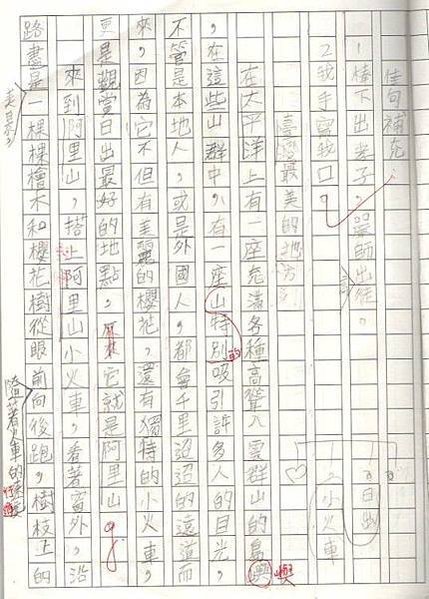 佳句補充：
1棒下出孝子，嚴師出徒。
2我手寫我口。
臺灣最美的地方
日出
小火車
在太平洋上有一座充滿各種高聳入雲群山的島嶼
嶼
，在這些山群中，有一座山特別吸引許多人的目光，
的
不管是本地人，或是外國人，都會千里迢迢的遠道而
來，因為它不但有美麗的櫻花，還有獨特的小火車，
更是觀賞日出最好的地點。原來它就是阿里山。
來到阿里山，搭上阿里山小火車，看著窗外，沿
路盡是一棵棵檜木和櫻花樹從眼前向後跑，樹枝上的
美景，
隨著火車的速度